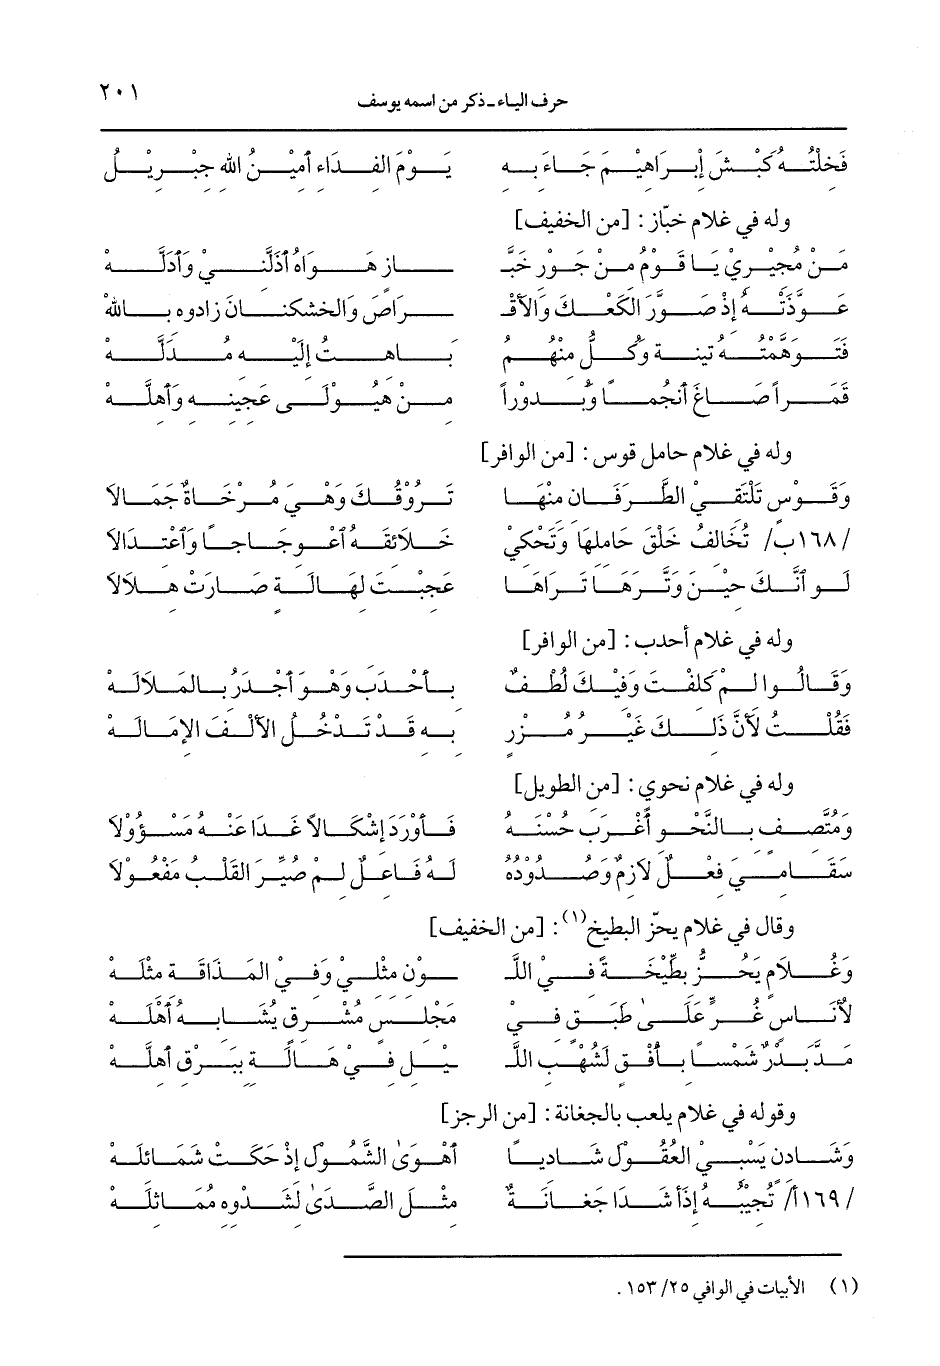 حرف الياء ـ ذكر من اسمه يوسف ٢٠١
فَخِلْتُهُ كَبْشَ إِبْرَاهِيْمَ جَاءَ بِهِ يَوْمَ الفِدَاءِ أَمِيْنُ اللهِ جِبْرِيْلُ
وله في غلام خبّاز: [من الخفيف]
مَنْ مُجِيْرِي يَا قَوْمُ مِنْ جَوْرِ خَبَّـ ـازٍ هَوَاهُ أَذَلَّنِيْ وَأَدَلَّهْ
عَوَّذَتْهُ إِذْ صَوَّرَ الكَعْكَ وَالأَقْـ ـرَاصَ وَالخشكنانَ زادوه باللهْ
فَتَوَهَّمْتُهُ تينة وَكُلٌّ مِنْهُمُ بَاهِتٌ إِلَيْهِ مُدَلَّهْ
قَمَراً صَاغَ أَنْجُماً وَبُدُوْراً مِنْ هَيُوْلَى عَجِينِهِ وَأَهِلَّهْ
وله في غلام حامل قوس: [من الوافر]
وَقَوْسٍ تَلْتَقِيْ الطَّرَفَانِ مِنْهَا تَرُوْقُكَ وَهْيَ مُرْخَاةٌ جَمَالاَ
/١٦٨ب/ تُخَالِفُ خَلْقَ حَامِلِهَا وَتَحْكِي خَلاَئِقَهُ أعْوِجَاجاً وَأعْتِدَالاَ
لَو أَنَّكَ حِيْنَ وَتَّرَهَا تَرَاهَا عَجِبْتَ لِهَالَةٍ صَارَتْ هِلاَلاَ
وله في غلام أحدب: [من الوافر]
وَقَالُوا لِمْ كَلِفْتَ وَفِيْكَ لُطْفٌ بِأَحْدَبَ وَهْوَ أَجْدَرُ بِالمَلاَلَهْ
فَقُلْتُ لأَنَّ ذَلِكَ غَيْرُ مُزْرٍ بِهِ قَدْ تَدْخُلُ الأَلْفَ الإِمَالَهْ
وله في غلام نحوي: [من الطويل]
وَمُتَّصِفٍ بِالنَّحْوِ أَغْرَبَ حُسْنُهُ فَأَوْرَدَ إِشْكَالاً غَدَا عَنْهُ مَسْؤُولاَ
سَقَامِيَ فِعْلٌ لاَزِمٌ وَصُدُوْدُهُ لَهُ فَاعِلٌ لِمْ صُيِّرَ القَلْبُ مَفْعُوْلاَ
وقال في غلام يحزّ البطيخ(١): [من الخفيف]
وَغُلاَمٍ يَحُزُّ بِطِّيْخَةً فِيْ اللَّـ ـوْنِ مِثْلِيْ وَفِيْ المَذَاقَةِ مِثْلَهْ
لأُنَاسٍ غُرٍّ عَلَى طَبَقٍ فِيْ مَجْلِسٍ مُشْرِقٍ يُشَابِهُ أَهْلَهْ
مَدَّ بَدْرٌ شَمْساً بِأُفْقٍ لِشُهْبِ اللَّـ ـيْلِ فِيْ هَالَةٍ بِبَرْقٍ أَهِلَّهْ
وقوله في غلام يلعب بالجغانة: [من الرجز]
وَشَادِنٍ يَسْبِيْ العُقُوْلَ شَادِياً أَهْوَى الشَّمُوْلَ إِذْ حَكَتْ شَمَائِلَهْ
/١٦٩أ/ تُجِيْبُهُ إِذَا شَدَا جَغَانَةٌ مِثْلَ الصَّدَى لِشَدْوِهِ مُمَاثِلَهْ
(١) الأبيات في الوافي ٢٥/ ١٥٣.